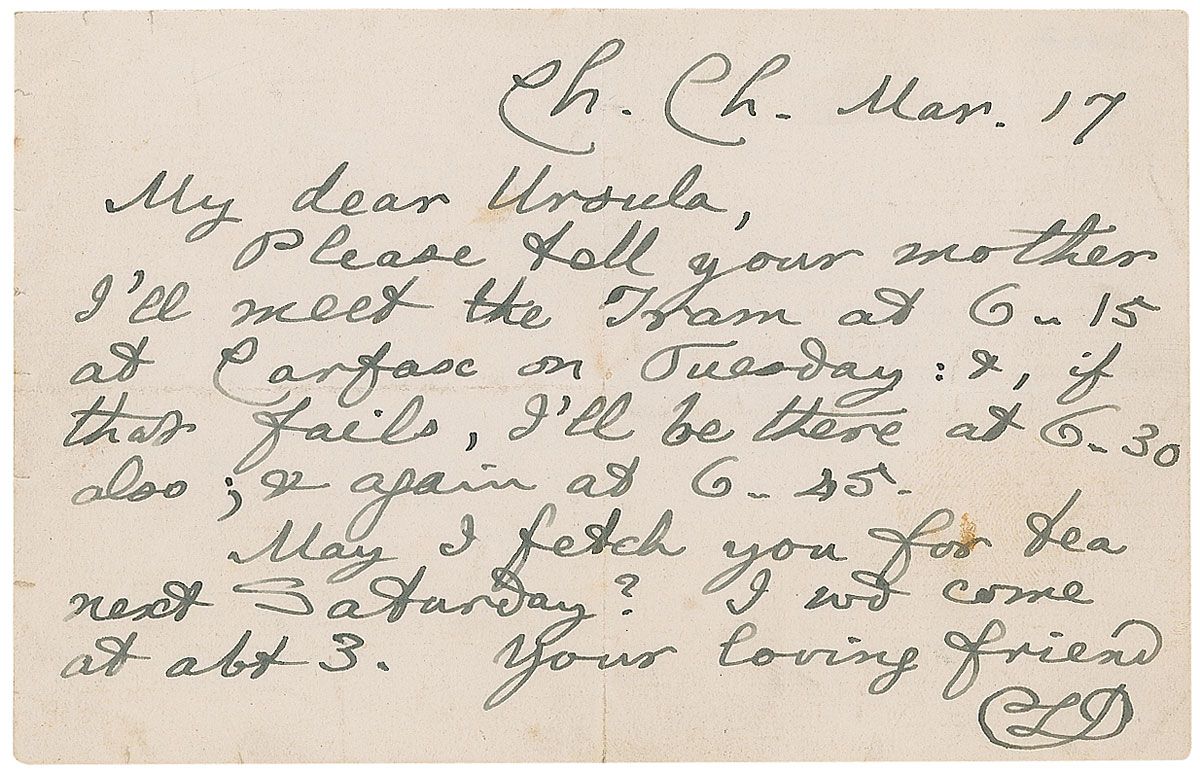 Ch. Ch. Mar. 17
My dear Ursula,
Please tell your mother
I'll meet the Tram at 6.. 15
at Carfax on Tuesday : &, if
that fails, I'll be there at 6.. 30
also ; & again at 6.. 45.
May I fetch you for tea
next Saturday? I wd come
at abt 3. Your loving friend
CLD